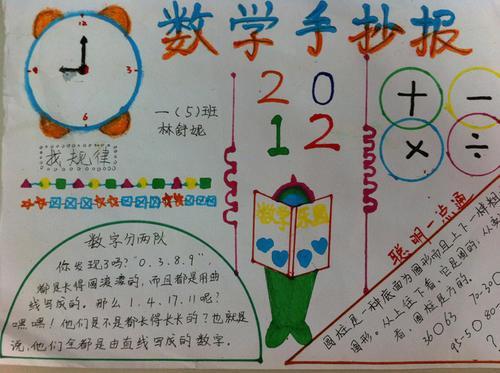 数学手抄报
12
3
6
9
一(5)班
林舒妮
20
12
+ -
× ÷
找规律
数学乐园
数字分两队
你发现了吗？“0.3.8.9”，
都是长得圆滚滚的，而且都是用曲
线写成的。那么1.4.17.11呢？
嘿嘿！他们是不是都长得长长的？也就是
说，他们全都是由直线写成的数字。
聪明一点通
圆柱是一种底面为圆形而且上下一样粗
图形。从上往下看，它是圆的，从
看，圆柱是方的。
36○63
70-30○
95-50
80-
？